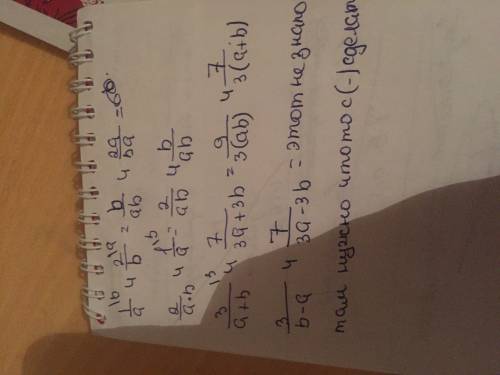 1\b/a и 2\a/b = b/ab и 2a/ba =
2/a·b и 1\b/a = 2/ab и b/ab
3\3/a+b и 7/3a+3b = 9/3(ab) и 7/3(a+b)
3/b-a и 7/3a-3b = этот не знаю
там нужно что то с (-) сделат